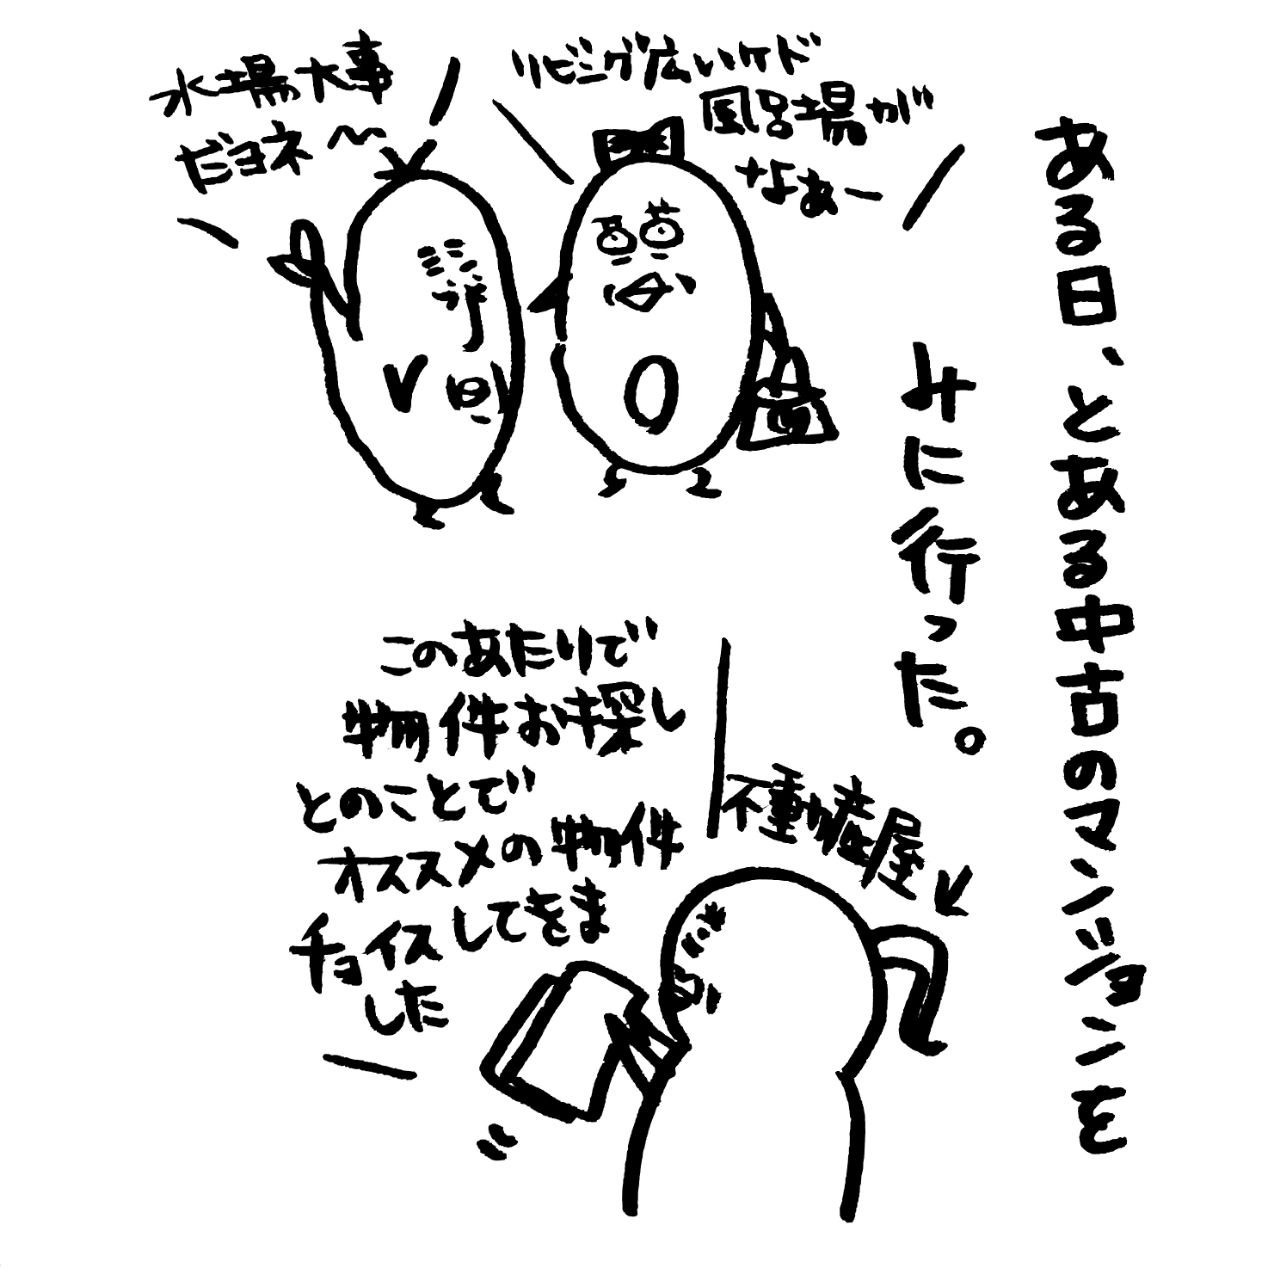 ある日、とある中古のマンションを
みに行った。
リビング広いケド
風呂場が
なぁー
水場大事
だヨネ〜
不動産屋
このあたりで
物件お探し
とのことで
オススメの物件
チョイスしてきま
した